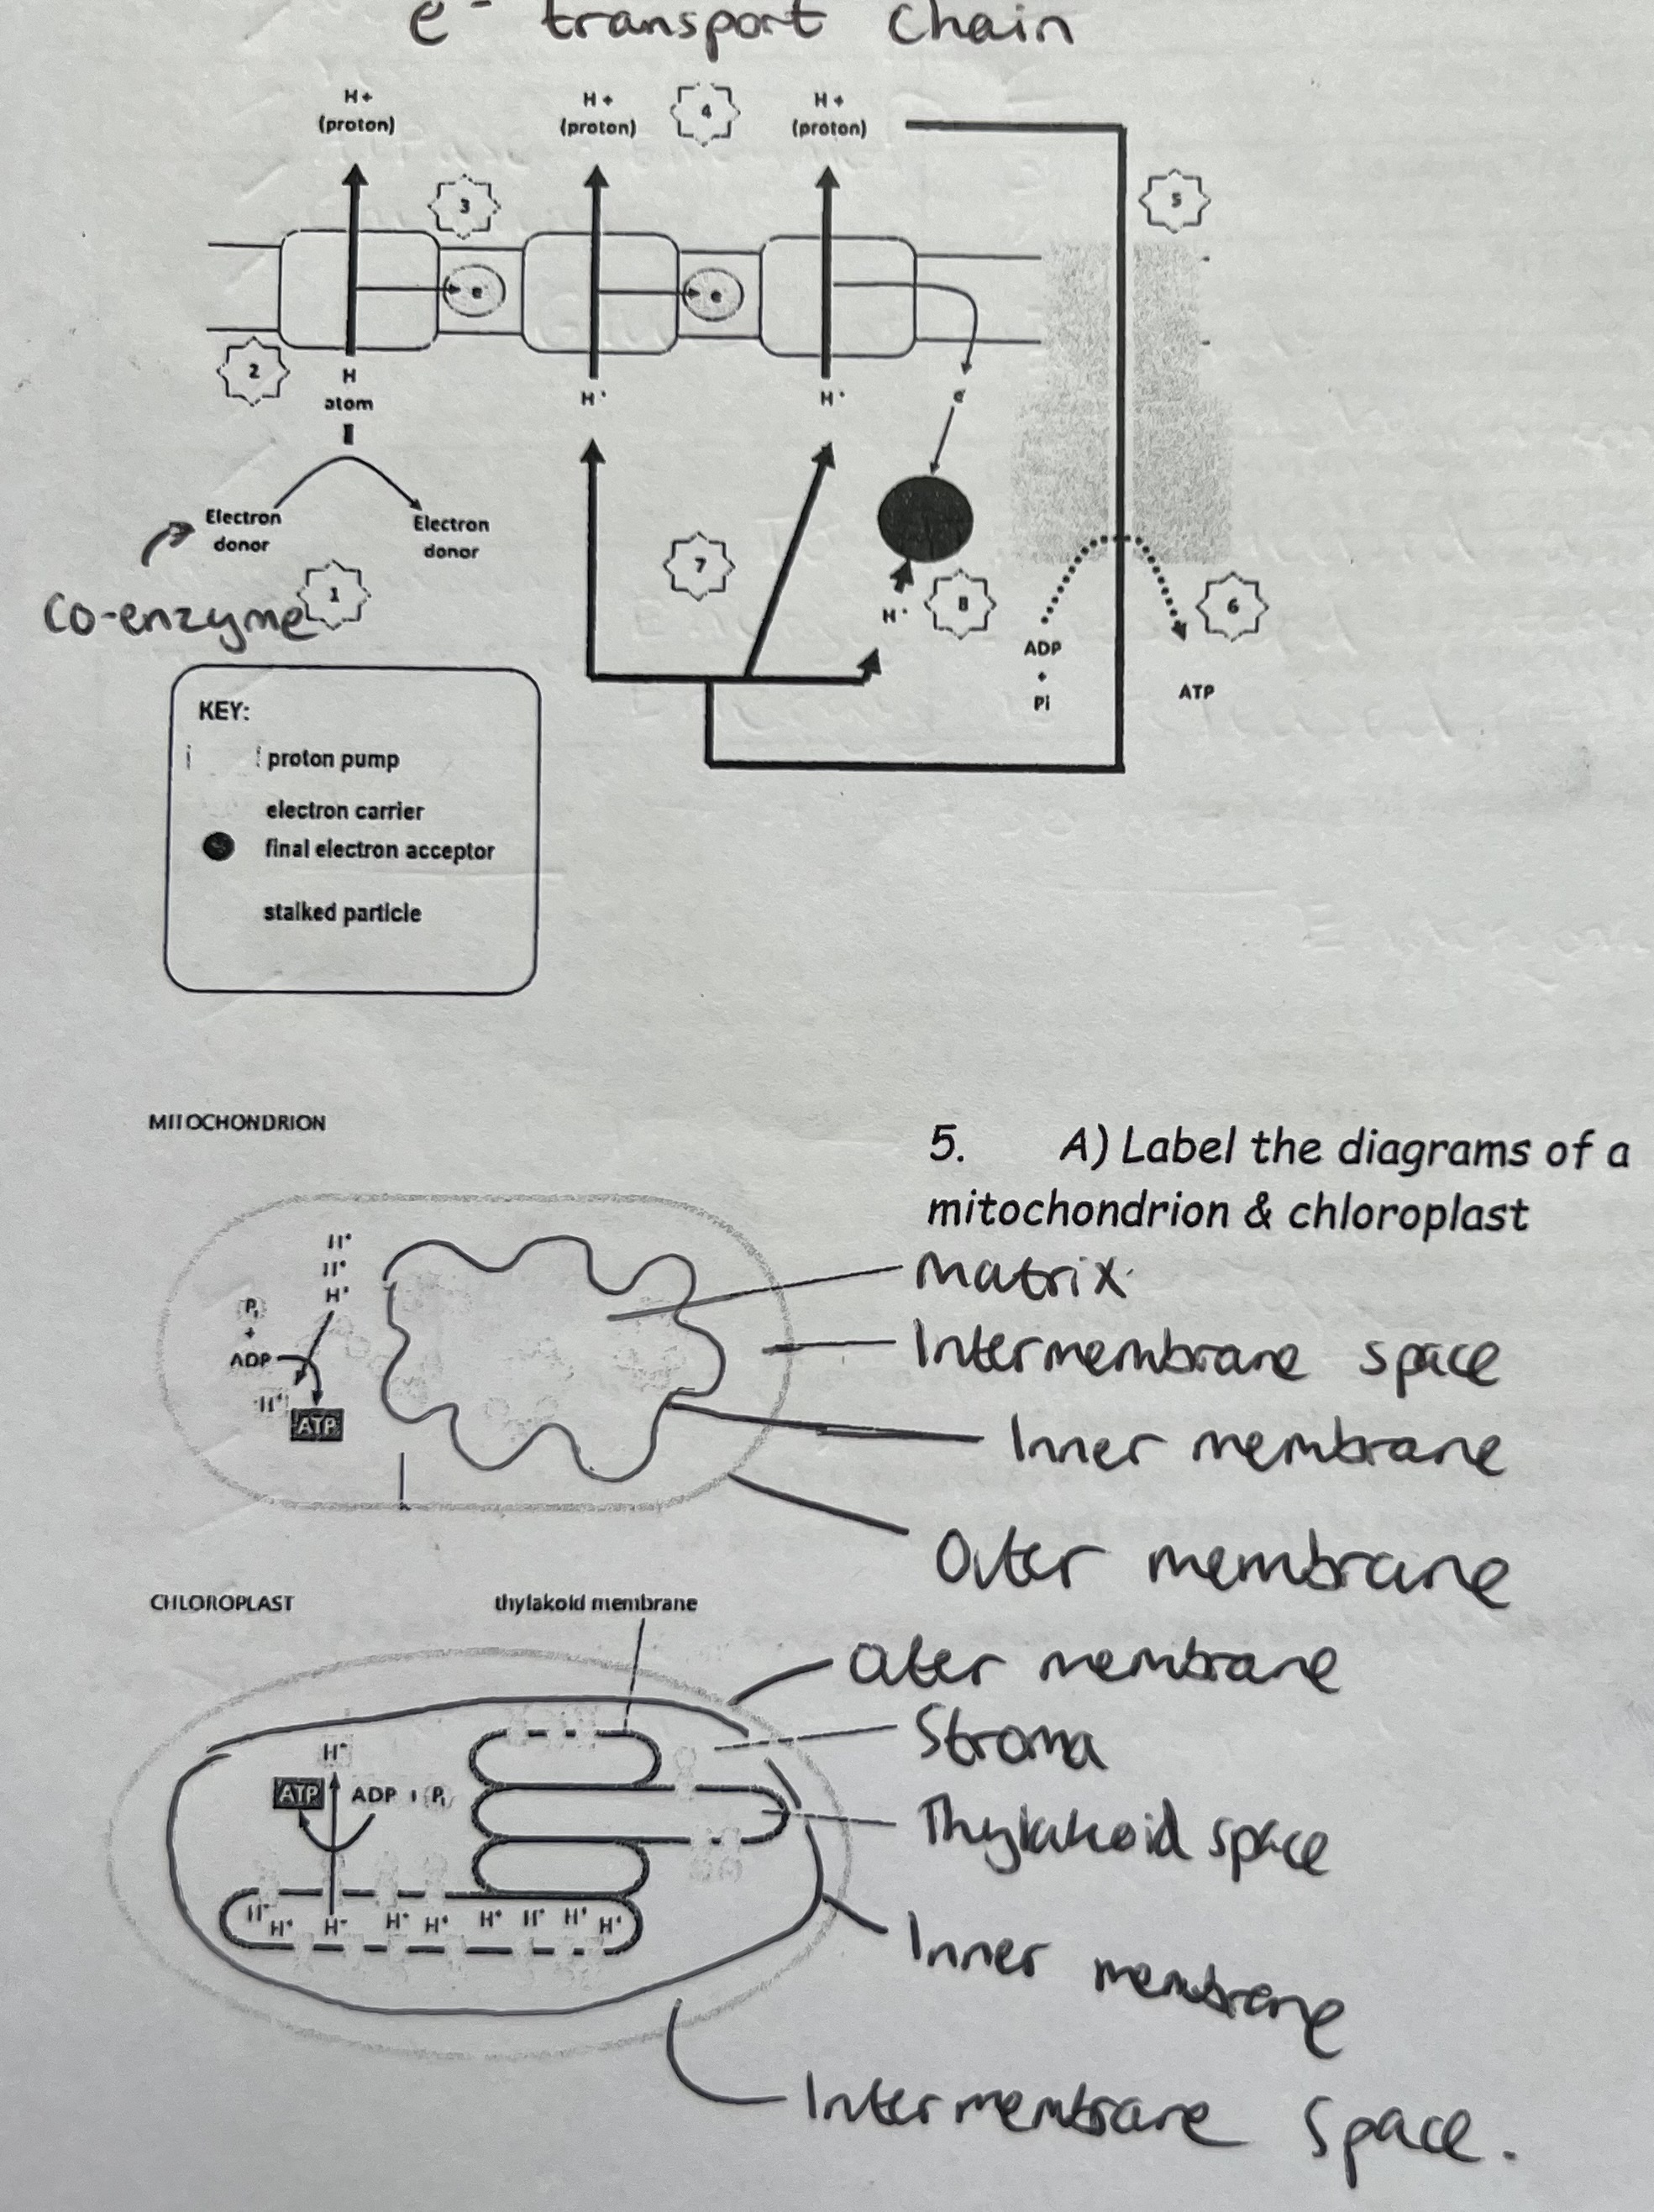 e⁻ transport chain
H+
(proton)
H+
(proton)
4
H+
(proton)
3
5
e
e
2
H
atom
H⁺
H⁺
e
Electron
donor
Electron
donor
Co-enzyme
1
7
H⁺
8
6
ADP
+
Pi
ATP
KEY:
proton pump
electron carrier
final electron acceptor
stalked particle
MITOCHONDRION
5. A) Label the diagrams of a
mitochondrion & chloroplast
H⁺
H⁺
H⁺
Pi
+
ADP
H⁺
ATP
Matrix
Intermembrane space
Inner membrane
Outer membrane
CHLOROPLAST
thylakoid membrane
Outer membrane
Stroma
H⁺
ATP
ADP + Pi
Thylakoid space
H⁺ H⁺ H⁺ H⁺ H⁺ H⁺ H⁺ H⁺ H⁺
Inner membrane
Intermembrane Space.